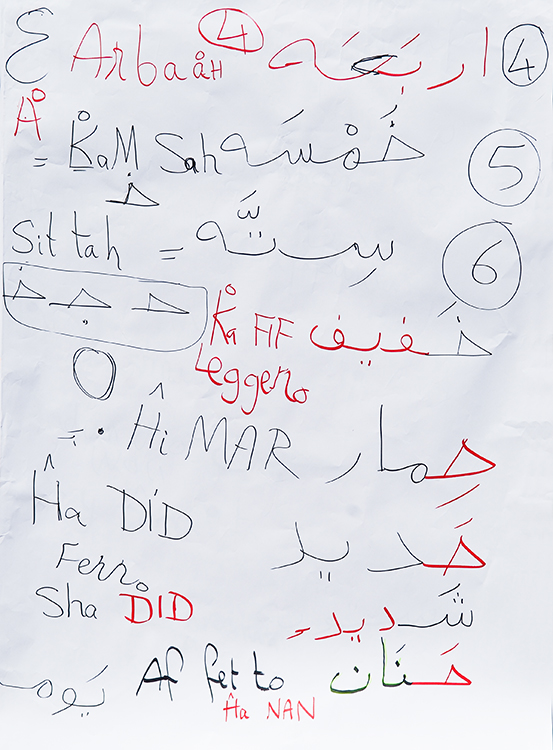 ع Arbaåh 4 اربَعَه 4
Å = K̊aM Sah خَمْسَه 5
خ
Sittah = سِتَّه 6
خ ج ح
K̊a FIF خَفيف
Leggero
0 = . Ĥi MAR حِمار
Ĥa DID حَديد
Ferro
Sha DID شَديد
يَوم Affetto حَنَان
Ĥa NAN